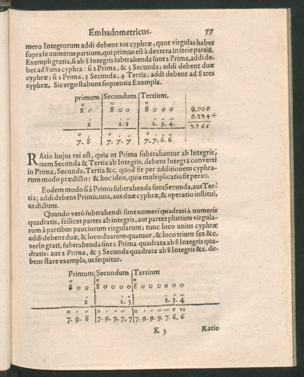 Embadometricus. 77
mero Integrorum addi debent tot cyphræ, quot virgulas haber
supra se numerus partium, qui primus est à dextera in serie partiū.
Exempli gratia, si ab 8 Integris subtrahenda sunt 2 Prima, addi de-
bet ad 8 una cyphra: si 2 Prima, & 3 Secunda; addi debent duæ
cyphræ; si 2 Prima, 3 Secunda, 4 Tertia; addi debent ad 8 tres
cyphræ. Sic ergo stabunt sequentia Exempla.
primum Secundum Tertium,
8 0 8 0 0 8 0 0 0 8.000
2 2. 3 2. 3. 4. 0.234
7. 8 7. 7. 7 7. 7. 6. 6 7.766
RAtio hujus rei est, quia ut Prima subtrahantur ab Integris,
item Secunda & Tertia ab Integris, debent Integra converti
in Prima, Secunda, Tertia &c. quod fit per additionem cyphra-
rum modo prædicto: & hoc ideo, quia multiplicatio fit per 10.
Eodem modo si à Primis subtrahenda sunt Secunda, aut Ter-
tia; addi debent Primis, una, aut duæ cyphræ, & operatio institui,
ut dictum.
Quando verò subtrahendi sunt numeri quadrati à numeris
quadratis, scilicet partes ab integris, aut partes plurium virgula-
rum à partibus pauciorum virgularum; tunc loco unius cyphræ
addi debent duæ, & loco duarum quatuor, & loco trium sex &c.
verbi grati, subtrahenda sint 2 Prima quadrata ab 8 Integris qua-
dratis: aut 2 Prima, & 3 Secunda quadrata ab 8 Integris &c. de-
bent stare exempla, ut sequitur.
Primum Secundum Tertium
8 0 0 8 0 0 0 0 8 0 0 0 0 0 0
2 2. 3 2. 3. 4
7. 9. 8 7. 9. 9. 7. 7 7. 9. 9. 9. 7. 6. 6
K 3 Ratio